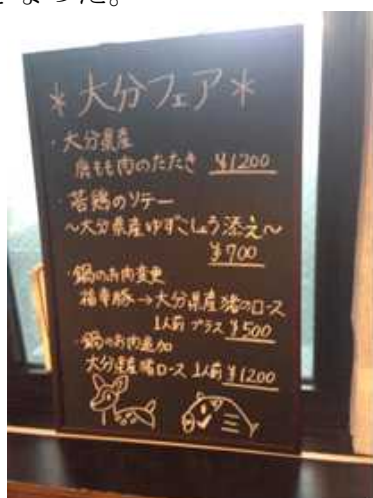 なった。
*大分フェア*
・大分県産
鹿もも肉のたたき ¥1200
・若鶏のソテー
〜大分県産ゆずこしょう添え〜
¥700
・鍋のお肉変更
豚→大分県産猪のロース
1人前 プラス ¥500
・鍋のお肉追加
大分県産猪ロース 1人前 ¥1200